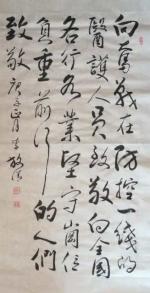 向奮戰在防控一線的
醫護人員致敬向全國
各行各業堅守崗位
負重前行的人們
致敬 庚子正月